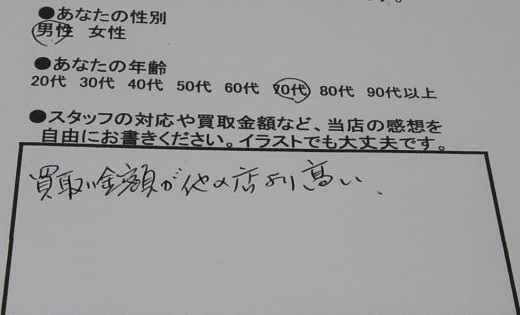 ●あなたの性別
男性 女性
●あなたの年齢
20代 30代 40代 50代 60代 70代 80代 90代以上
●スタッフの対応や買取金額など、当店の感想を
自由にお書きください。イラストでも大丈夫です。
買取い金額が他の店より高い、